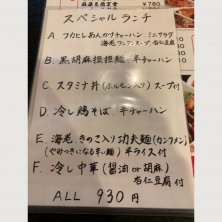 麻婆豆腐定食 ¥780
スペシャルランチ
A. フカヒレあんかけチャーハン ミニサラダ
海老ワンタンスープ、杏仁豆腐
B. 黒胡麻担担麺 半チャーハン
C. スタミナ丼(ホルモン入り) スープ付
D. 冷し鶏そば、半チャーハン
E. 海老、きのこ入り功夫麺(カンフーメン)
(やみつきになる辛い麺) 半ライス付
F. 冷し中華(醤油or胡麻)
杏仁豆腐付
ALL 930円